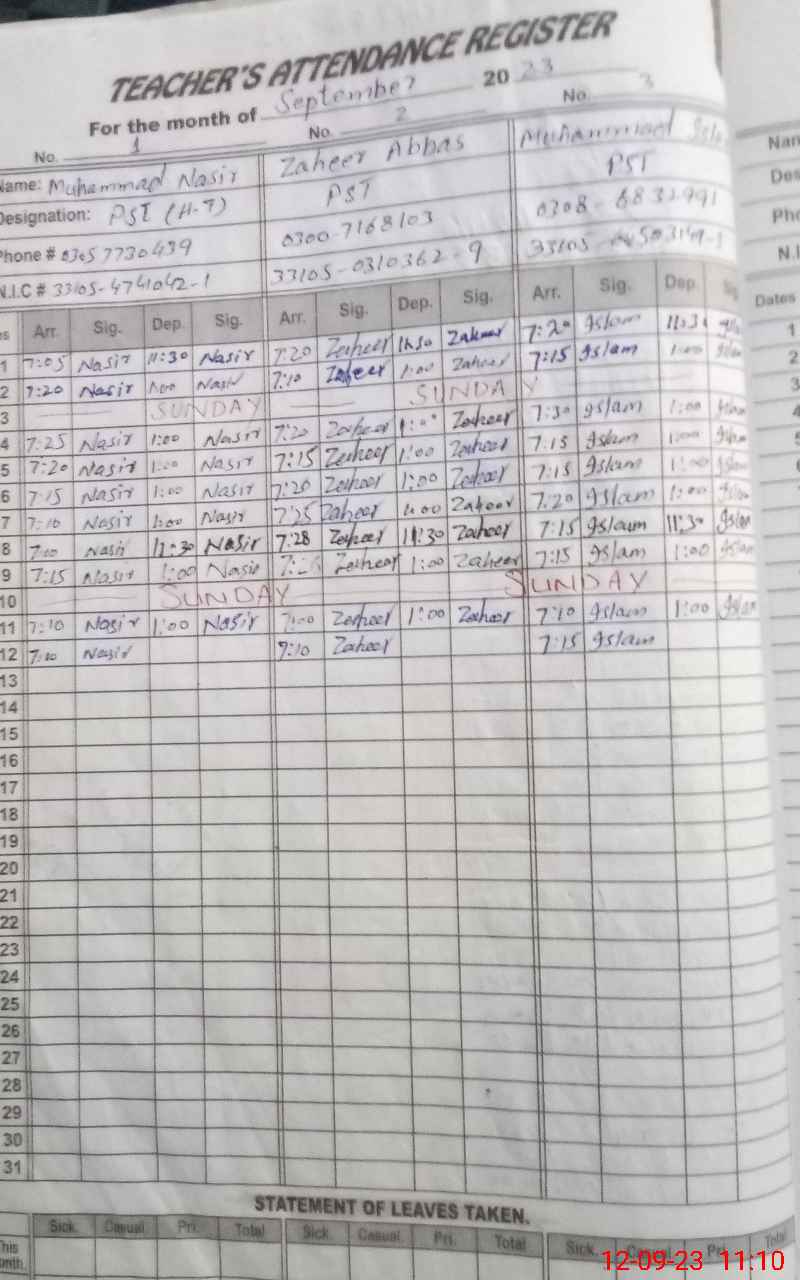 TEACHER'S ATTENDANCE REGISTER
For the month of September 2023
No. 1 No. 2 No. 3
Name: Muhammad Nasir Zaheer Abbas Muhammad
Designation: PST (H-T) PST PST
Phone # 0305 7730439 0300-7168103 0308-6832991
N.I.C # 33105-4741042-1 33105-0310362-9 33105-
Arr. Sig. Dep. Sig. Arr. Sig. Dep. Sig. Arr. Sig. Dep.
1 7:05 Nasir 11:30 Nasir 7:20 Zaheer 11:30 Zaheer 7:20 Islam 11:3
2 7:20 Nasir 1:00 Nasir 7:10 Zaheer 1:00 Zaheer 7:15 Islam 1:00
3 SUNDAY SUNDAY
4 7:25 Nasir 1:00 Nasir 7:20 Zaheer 1:00 Zaheer 7:30 Islam 1:00 Islam
5 7:20 Nasir 1:00 Nasir 7:15 Zaheer 1:00 Zaheer 7:15 Islam 1:00
6 7:15 Nasir 1:00 Nasir 7:20 Zaheer 1:00 Zaheer 7:15 Islam 1:00
7 7:10 Nasir 1:00 Nasir 7:25 Zaheer 1:00 Zaheer 7:20 Islam 1:00
8 7:00 Nasir 11:30 Nasir 7:28 Zaheer 11:30 Zaheer 7:15 Islam 11:30 Islam
9 7:15 Nasir 1:00 Nasir Zaheer 1:00 Zaheer 7:15 Islam 1:00 Islam
10 SUNDAY SUNDAY
11 7:10 Nasir 1:00 Nasir 7:00 Zaheer 1:00 Zaheer 7:10 Islam 1:00 Islam
12 7:00 Nasir 7:10 Zaheer 7:15 Islam
13
14
15
16
17
18
19
20
21
22
23
24
25
26
27
28
29
30
31
STATEMENT OF LEAVES TAKEN.
Sick. Casual. Pri. Total Sick. Casual. Pri. Total Sick. Pri. Total
This
Dates
1
2
3
12-09-23 11:10